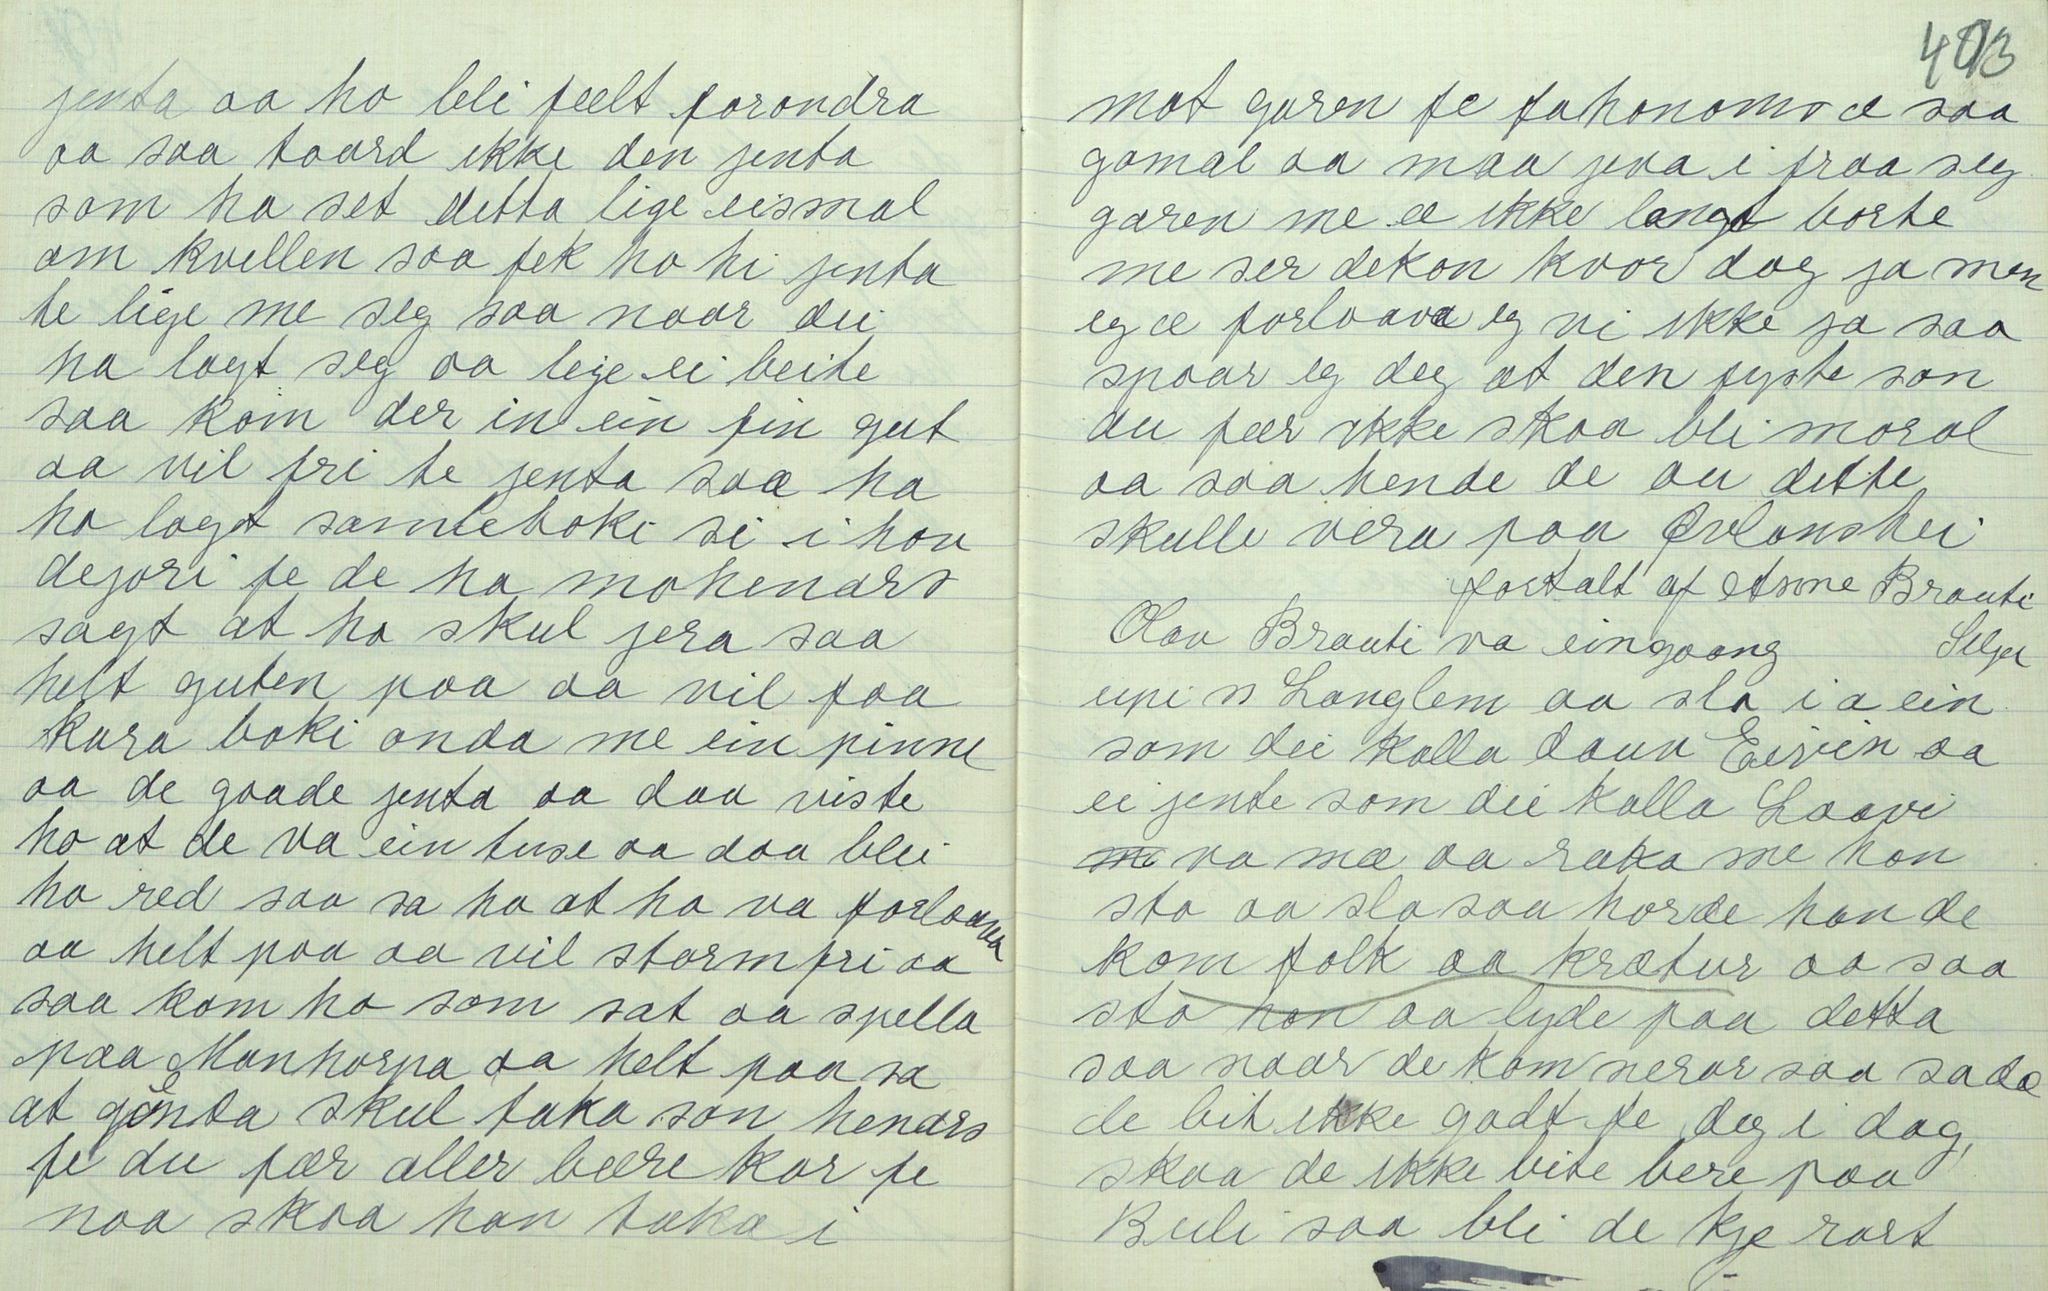 jenta aa ho bli feelt forondra
aa saa toord ikke den jenta
som ha set detta lige eismal
om kvellen saa fek ho hi jenta
te lige me seg saa naar dei
ha lagt seg aa leje ei beite
saa kom der in ein fin gut
aa vil fri te jenta saa ha
ho lagt samleboki si i hou
dejori fe de ha mo henars
sagt at ho skul jera saa
helt guten paa aa vil faa
kara boki onda me ein pinne
aa de goade jenta aa daa viste
ho at de va ein tuse aa daa blei
ho red saa sa ho at ho va forloava
aa helt paa aa vil stormfri aa
saa kom ho som sat aa spella
paa Monhorpa aa helt paa sa
at gjenta skul taka son henars
fe du fær aller bære kar fe
naa skaa han taka i
403
mot garen fe fa honoms æ saa
gomal aa maa jeva i fraa seg
garen me æ ikke langt borte
me ser dekon kvor dag ja men
eg æ forloava eg vi ikke ja saa
spaar eg deg at den fyste son
du fær ikke skaa bli moral
aa saa hende de au dette
skulle vera paa Øvlanshei
fortalt af Asne Brauti
Olav Brauti va eingoang Seljor
upi n Langlem aa slo i a ein
som dei kalla daun Eivin aa
ei jente som dei kalla Laavi
va mæ aa raka me han
sto aa slo saa horde han de
kom folk aa krætur aa saa
sto han aa lyde paa detta
saa naar de kom nerar saa sa dæ
de bit ikke godt fe deg i dag,
skaa de ikke bite bere paa
Buli saa bli de kje rart